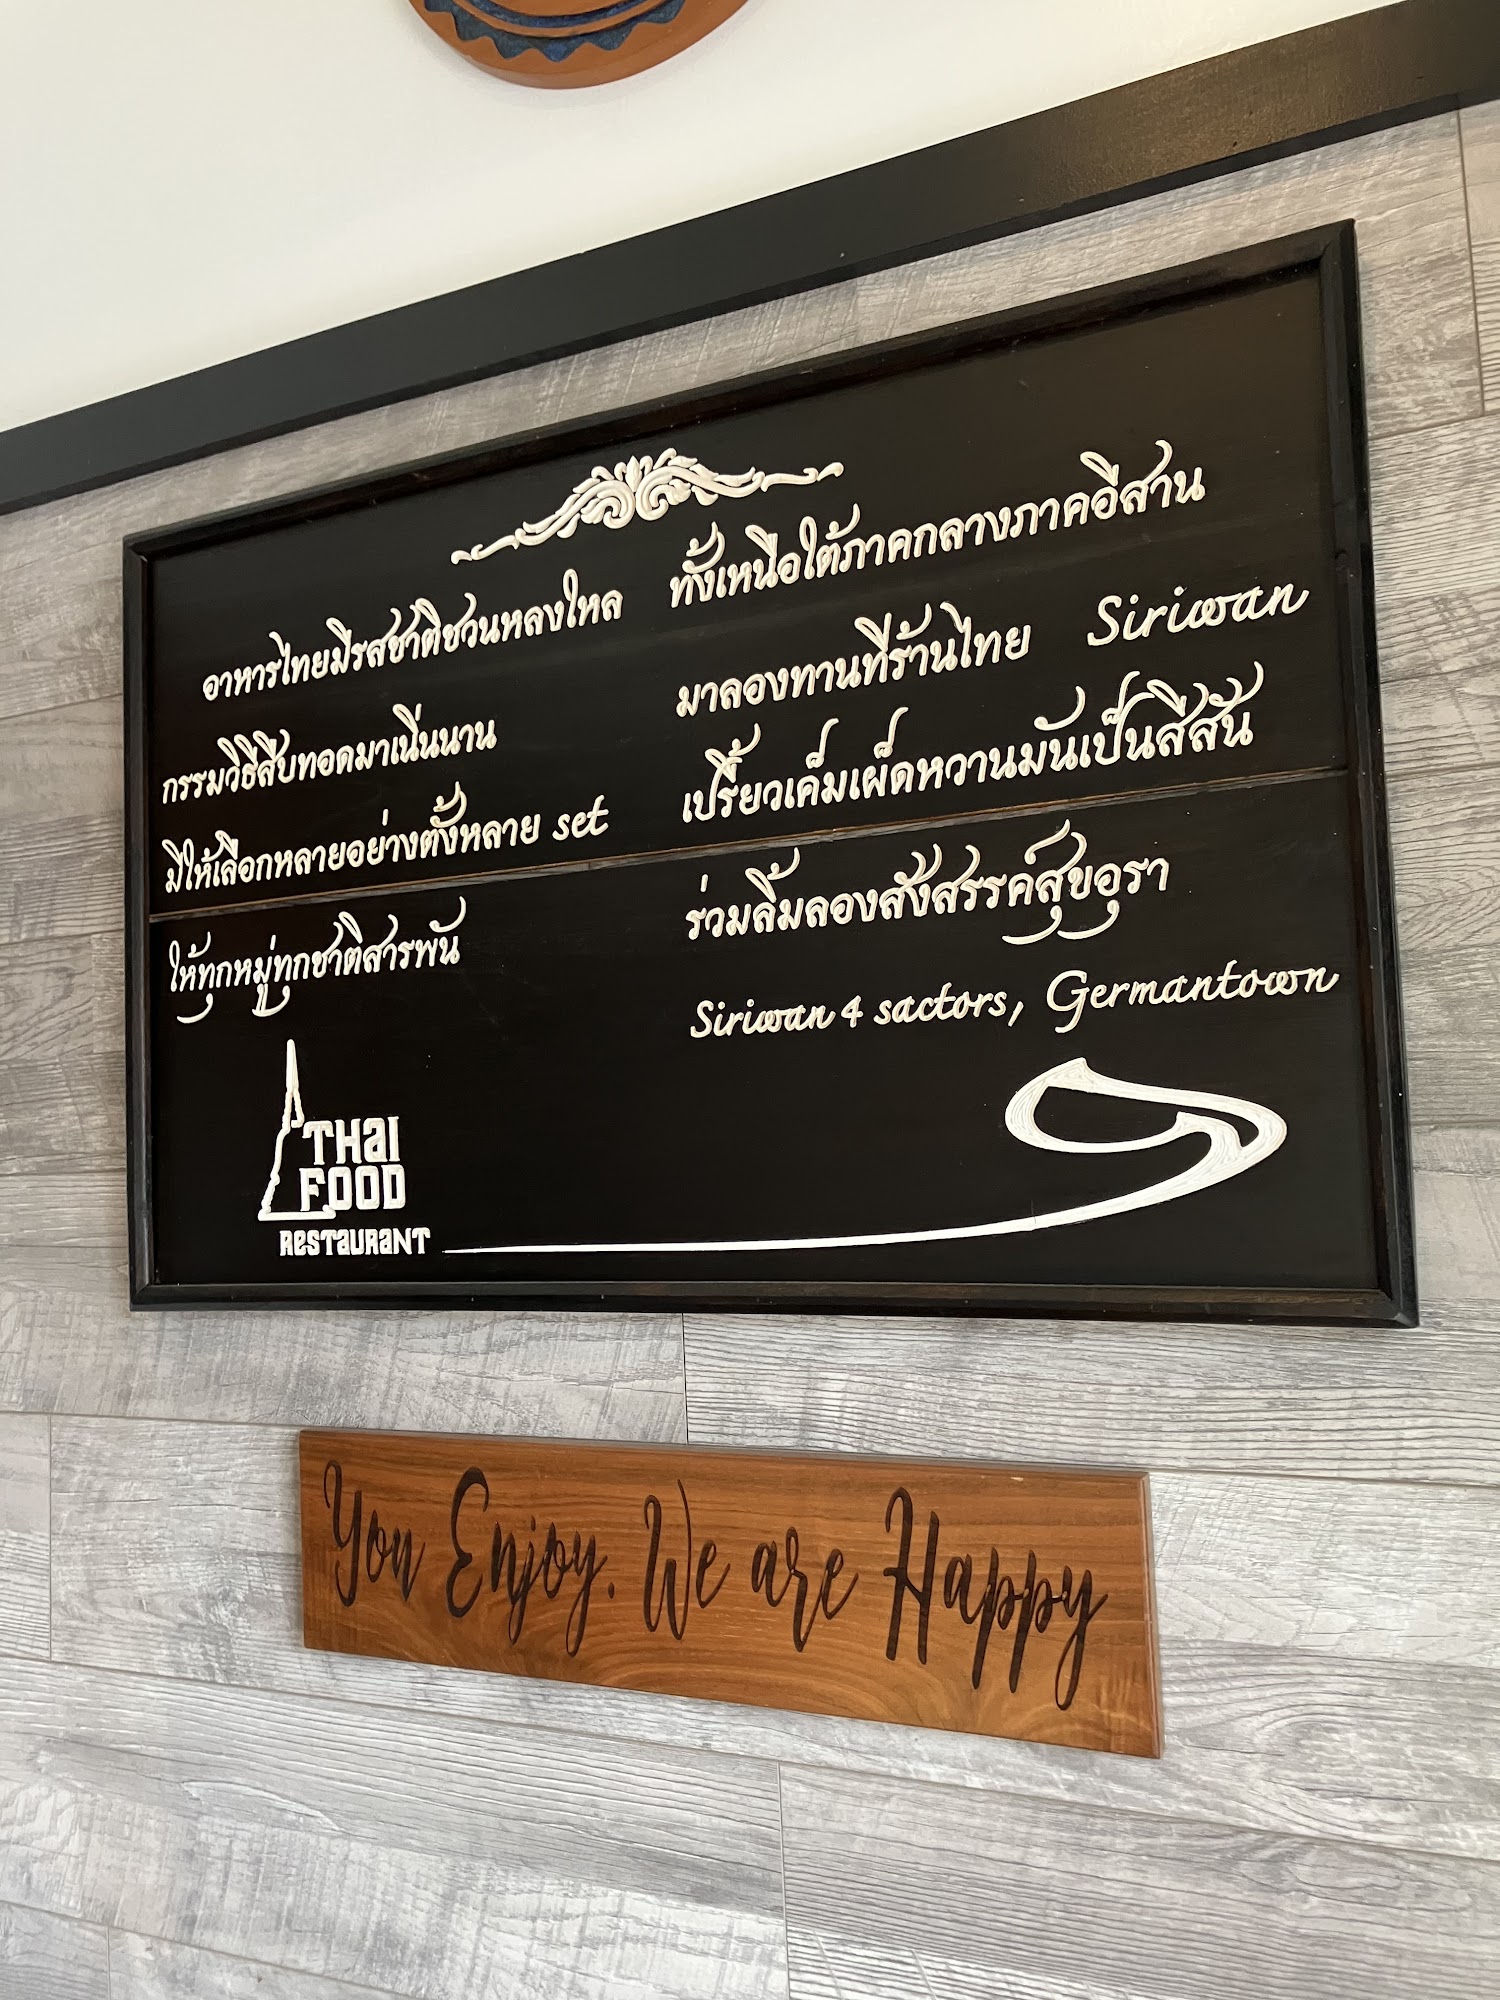 อาหารไทยมีรสชาติชวนหลงใหล ทั้งเหนือใต้ภาคกลางภาคอีสาน
กรรมวิธีสืบทอดมาเนิ่นนาน มาลองทานที่ร้านไทย Siriwan
มีให้เลือกหลายอย่างตั้งหลาย set เปรี้ยวเค็มเผ็ดหวานมันเป็นสีสัน
ให้ทุกหมู่ทุกชาติสารพัน ร่วมลิ้มลองสังสรรค์สุขอุรา
Siriwan 4 sactors, Germantown
THAI
FOOD
RESTAURANT
You Enjoy. We are Happy